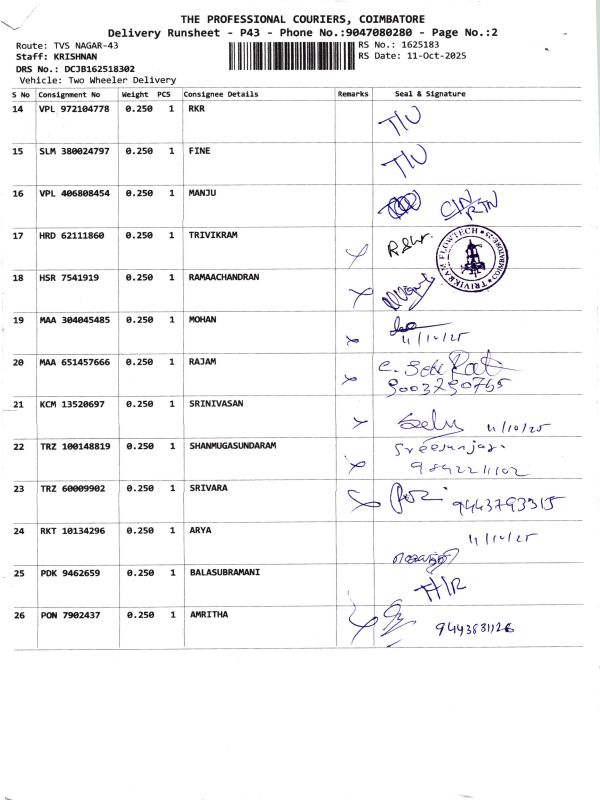 THE PROFESSIONAL COURIERS, COIMBATORE
Delivery Runsheet - P43 - Phone No.:9047080280 - Page No.:2
Route: TVS NAGAR-43 RS No.: 1625183
Staff: KRISHNAN RS Date: 11-Oct-2025
DRS No.: DCJB162518302
Vehicle: Two Wheeler Delivery
S No Consignment No Weight PCS Consignee Details Remarks Seal & Signature
14 VPL 972104778 0.250 1 RKR T/U
15 SLM 380024797 0.250 1 FINE T/U
16 VPL 406808454 0.250 1 MANJU
17 HRD 62111860 0.250 1 TRIVIKRAM TRIVIKRAM FLOWTECH
18 HSR 7541919 0.250 1 RAMAACHANDRAN
19 MAA 304045485 0.250 1 MOHAN 11/10/25
20 MAA 651457666 0.250 1 RAJAM
9003730765
21 KCM 13520697 0.250 1 SRINIVASAN 11/10/25
22 TRZ 100148819 0.250 1 SHANMUGASUNDARAM
9842211102
23 TRZ 60009902 0.250 1 SRIVARA 9443793315
24 RKT 10134296 0.250 1 ARYA 11/10/25
25 PDK 9462659 0.250 1 BALASUBRAMANI
26 PON 7902437 0.250 1 AMRITHA